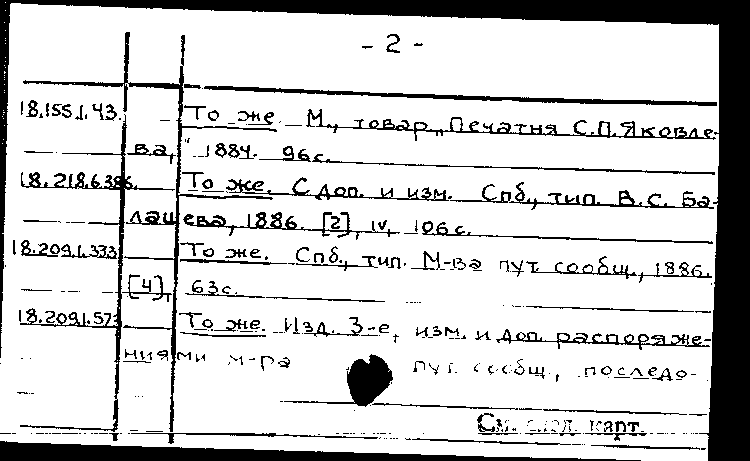 - 2 -
18.155.1.43. То же. М., товар. „Печатня С.П. Яковле-
ва,“ 1884. 96 с.
18.218.6.386. То же. С доп. и изм. Спб., тип. В.С. Ба-
лашева, 1886. [2], IV, 106 с.
18.209.1.333 То же. Спб., тип. М-ва пут. сообщ., 1886.
[4], 63 с.
18.209.1.573. То же. Изд. 3-е, изм. и доп. распоряже-
ниями м-ра пут. сообщ., последо-
См. след. карт.